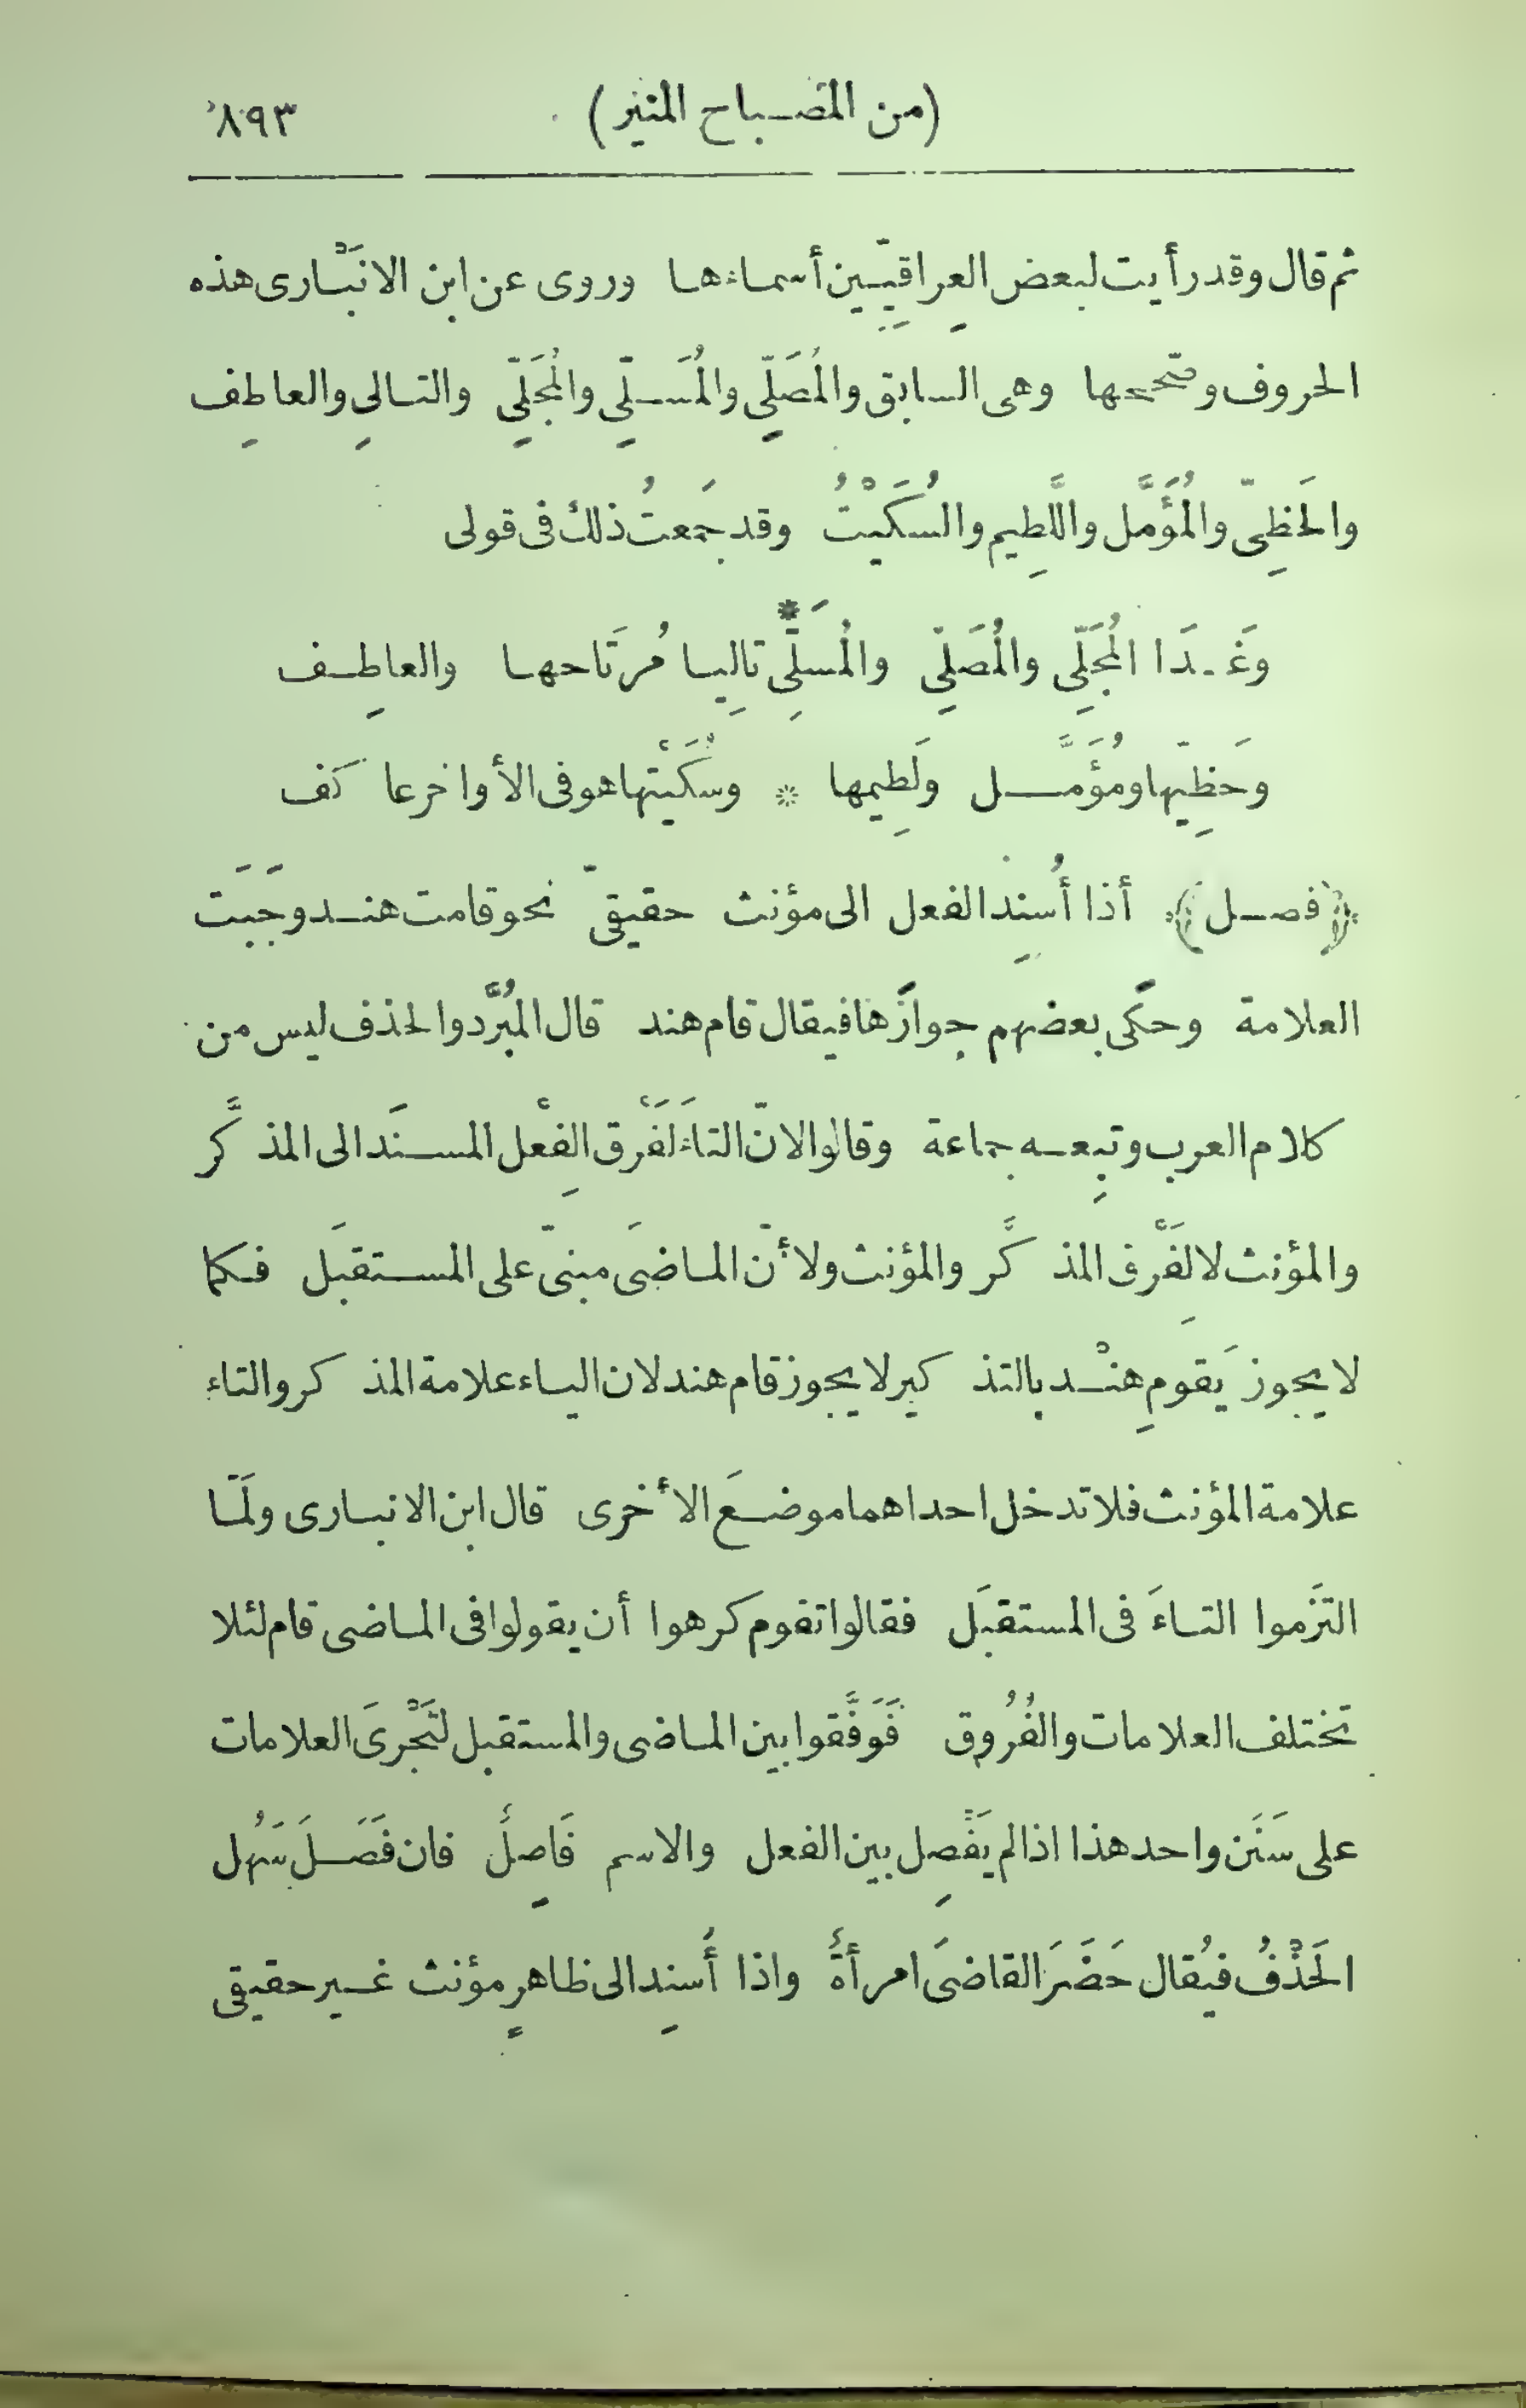 (من المصباح المنير) ٨٩٣
ثم قال وقد رأيت لبعض العِراقيِّين أسماءها وروى عن ابن الانبْارى هذه
الحروف وصححها وهى السابق والمُصَلِّى والمُسَلِّى والمُجَلِّى والتالىِ والعاطِف
والحَظِىّ والمُؤَمَّل واللَّطِيم والسُكَيْتُ وقد جَمعتُ ذلك فى قولى
وَغَدَا المُجَلِّى والمُصَلِّى والمُسَلِّى * تالِيا مُرتَاحها والعاطِف
وحَظِيّها ومُؤَمَّل ولَطِيمها * وسُكَيْتها هو فى الأواخر عاكف
﴿فصل﴾ أذا أُسنِد الفعل الى مؤنث حقيقىّ نحو قامت هند وجَبَت
العلامة وحكَى بعضهم جوازَها فيقال قام هند قال المُبَرَّد والحذف ليس من
كلام العرب وتبِعه جماعة وقالوا لانّ التاءَ لفَرْق الفِعْل المسنَد الى المذكَّر
والمؤنث لا لِفَرْق المذكَّر والمؤنث ولأنّ الماضىَ مبنىّ على المستقبَل فكما
لا يجوز يَقوم هِنْد بالتذكير لا يجوز قام هند لان الياء علامة المذكر والتاء
علامة المؤنث فلا تدخل احداهما موضعَ الأخرى قال ابن الانبارى ولَمّا
التَزموا التاءَ فى المستقبَل فقالوا تقوم كرهوا أن يقولوا فى الماضى قام لئلا
تختلف العلامات والفُرُوق فَوَفَّقوا بين الماضى والمستقبل لتَجْرىَ العلامات
على سَنَن واحد هذا اذا لم يَفْصِل بين الفعل والاسم فَاصِلٌ فان فَصَلَ سَهُل
الحَذْفُ فيُقال حَضَرَ القاضىَ امرأةٌ واذا أُسنِد الى ظاهرٍ مؤنث غير حقيقى